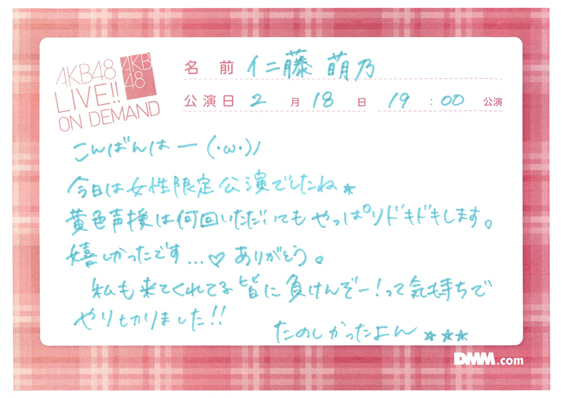 AKB48
LIVE!!
ON DEMAND
AKB
48
名前 仁藤 萌乃
公演日 2 月 18 日 19 : 00 公演
こんばんはー (・ω・)ノ
今日は女性限定公演でしたね★
黄色声援は何回いただいてもやっぱりドキドキします。
嬉しかったです...♡ ありがとう。
私も来てくれてる皆に負けんぞー!って気持ちで
やりきりました!!
たのしかったよん ★★★
DMM.com